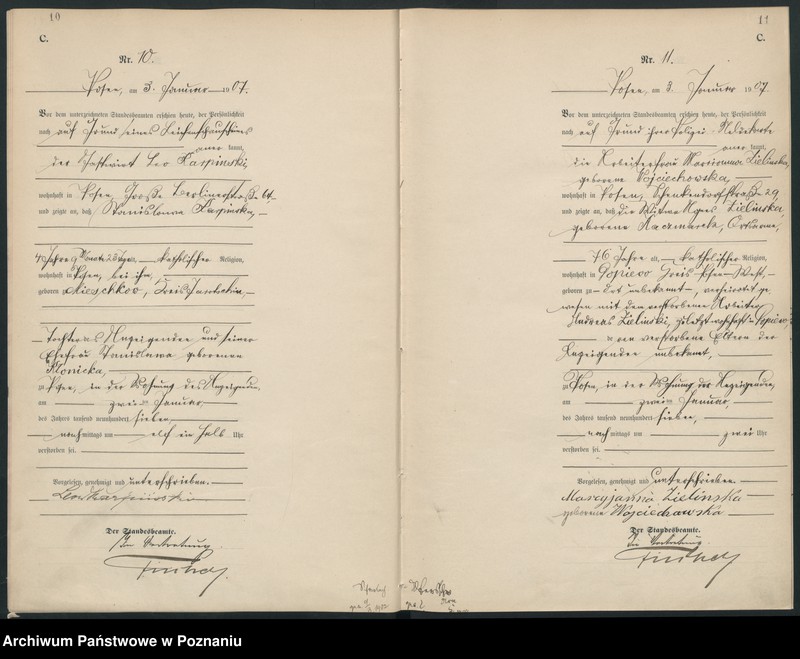 10
C.
Nr. 10.
Posen, am 3. Januar 1907.
Vor dem unterzeichneten Standesbeamten erschien heute, der Persönlichkeit
nach auf Grund eines Leichenschauscheins
aner kannt,
der Gastwirt Leo Karpinski,
wohnhaft in Posen, Große Berlinerstraße 64
und zeigte an, daß Stanislawa Karpinska,
Jahre 9 Monate katholischer Religion,
wohnhaft in Posen, bei ihm,
geboren zu Mieschkow, Kreis Jarotschin,
Tochter des Anzeigenden und seiner
Ehefrau Stanislawa geborenen
Klonicka,
zu Posen, in der Wohnung des Anzeigenden,
am zweiten Januar
des Jahres tausend neunhundert sieben
nachmittags um elf ein halb Uhr
verstorben sei.
Vorgelesen, genehmigt und unterschrieben.
Leo Karpinski
Der Standesbeamte.
In Vertretung.
11
C.
Nr. 11.
Posen, am 3. Januar 1907.
Vor dem unterzeichneten Standesbeamten erschien heute, der Persönlichkeit
nach auf Grund ihrer Polizei-Meldekarte
aner kannt,
die Arbeiterfrau Marianna Zielinska,
geborene Wojciechowska,
wohnhaft in Posen, Schenkendorfstraße 29,
und zeigte an, daß die Witwe Agnes Zielinska
geborene Kaczmarek, Ortsarme,
76 Jahre alt, katholischer Religion,
wohnhaft in Kreis Posen-West,
geboren zu Ort unbekannt, verheiratet ge-
wesen mit dem verstorbenen Arbeiter
Andreas Zielinski, zuletzt wohnhaft in
verstorbene Eltern der
Anzeigenden unbekannt,
zu Posen, in der Wohnung der Anzeigenden,
am zweiten Januar
des Jahres tausend neunhundert sieben,
nachmittags um zwei Uhr
verstorben sei.
Vorgelesen, genehmigt und unterschrieben
Maryjanna Zielinska
geborene Wojciechowska
Der Standesbeamte.
In Vertretung.
Archiwum Państwowe w Poznaniu